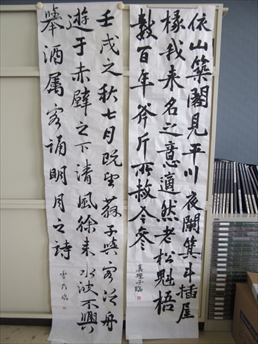 依山築閣見平川夜闌箕斗插屋
椽我来名之意適然老松魁梧
數百年斧斤所赦今参
壬戌之秋七月既望蘇子與客泛舟
遊于赤壁之下清風徐来水波不興
舉酒属客誦明月之詩